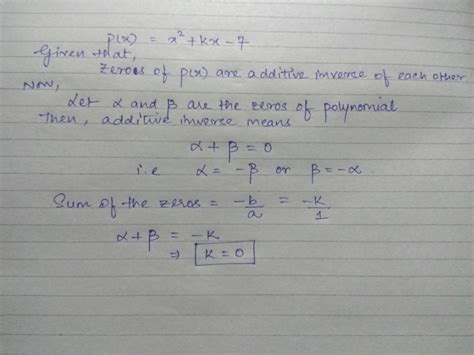 p(x) = x² + kx - 7
Given that,
zeroes of p(x) are additive inverse of each other
Now,
Let α and β are the zeros of polynomial
then, additive inverse means
α + β = 0
i.e α = -β or β = -α.
Sum of the zeros = -b/a = -k/1
α + β = -k
⇒ k = 0